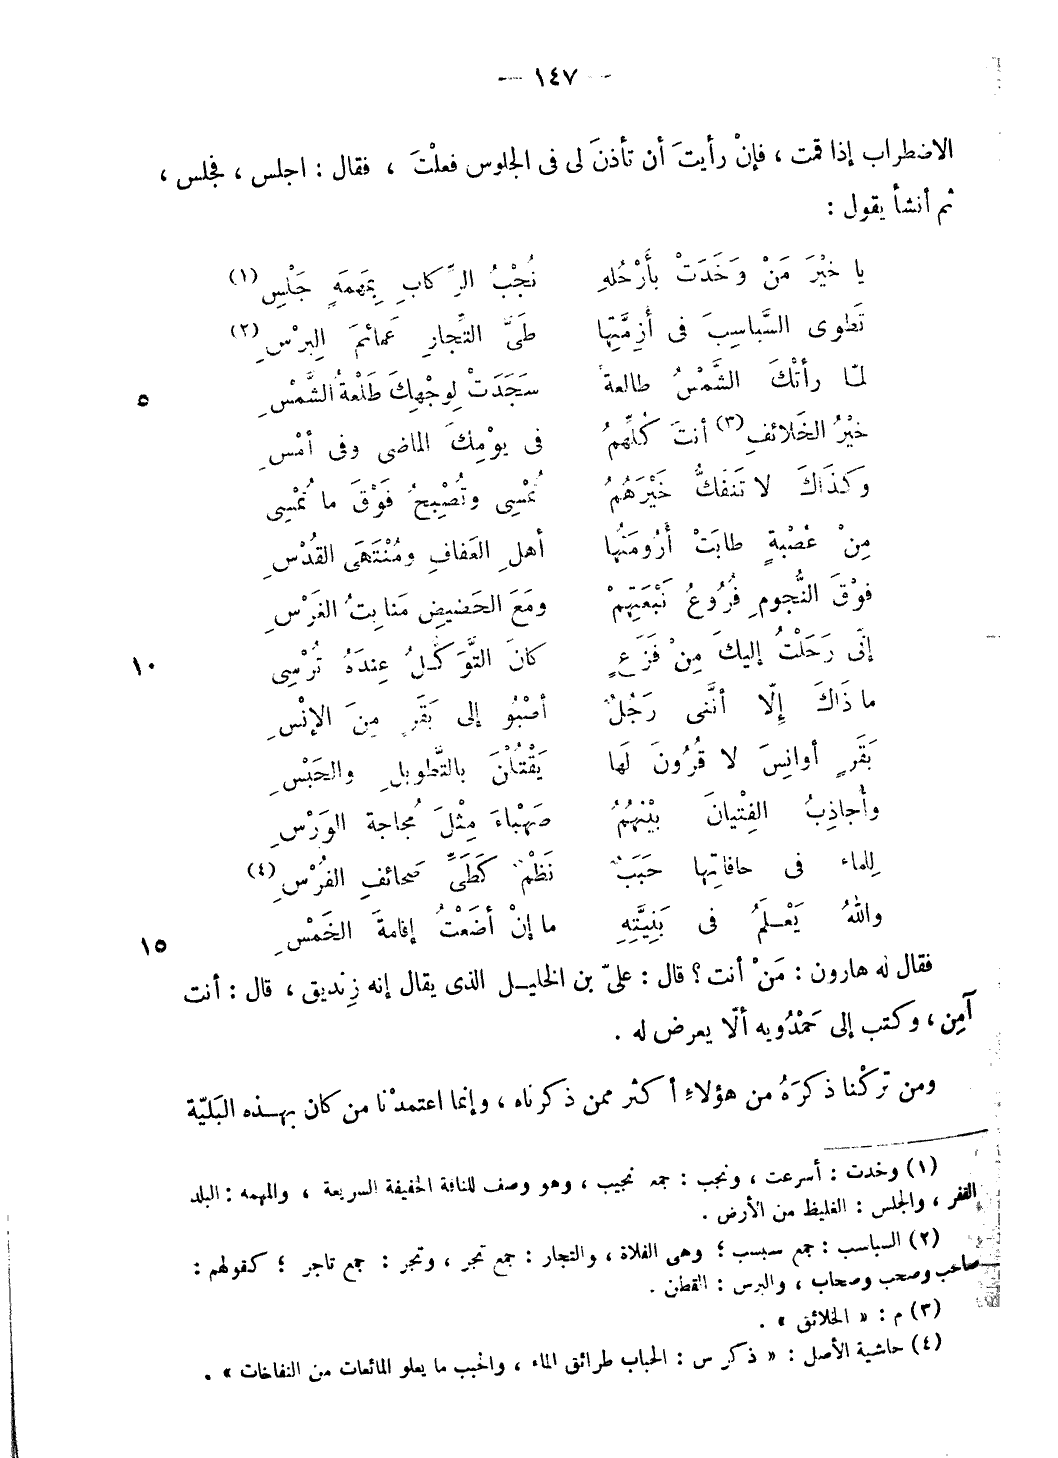 — ١٤٧ —
الاضطراب إذا قمت ، فإنْ رأيتَ أن تأذنَ لى فى الجلوس فعلْتَ ، فقال : اجلس ، فجلس ،
ثم أنشأ يقول :
يا خيْرَ مَنْ وَخَدَتْ بأَرْحُلهِ نُجْبُ الرِّكابِ بِمَهمَهٍ جَلْسِ (١)
تَطوِى السَّباسِبَ فى أزِمَّتِها طَىَّ التِّجارِ عَمائمَ البِرْسِ (٢)
لمّا رأتْكَ الشَّمْسُ طالعةً سَجَدَتْ لِوجْهِكَ طَلْعةُ الشَّمْسِ ٥
خيْرُ الخَلائفِ (٣) أنتَ كُلِّهِمُ فى يوْمِكَ الماضى وفى أمْسِ
وَكذَاكَ لا تَنفَكُّ خَيْرَهُمُ تُمْسِى وتُصْبِحُ فَوْقَ ما تُمْسِى
مِنْ عُصْبةٍ طابَتْ أُرُومَتُها أهلِ العَفافِ ومُنْتَهَى القُدْسِ
فوْقَ النُّجومِ فُرُوعُ نَبْعَتِهِمْ ومَعَ الحَضيضِ مَنابِتُ الغَرْسِ
إنّى رَحَلْتُ إليكَ مِنْ فَزَعٍ كانَ التَّوَكُّلُ عِندَهُ تُرْسِى ١٠
ما ذَاكَ إلّا أنَّنى رَجُلٌ أصْبُو إلى بَقَرٍ مِنَ الإنْسِ
بَقَرٍ أوانِسَ لا قُرُونَ لَها يَقْتُلْنَ بالتَّطويلِ والحَبْسِ
وأُجاذِبُ الفِتْيانَ بيْنهُمُ صَهْباءَ مِثْلَ مُجاجة الوَرْسِ
لِلماء فى حافاتِها حَبَبٌ نَظْمٌ كَطَىِّ صَحائفِ الفُرْسِ (٤)
واللهُ يَعْـلَمُ فى بَنِيَّتِهِ ما إنْ أضَعْتُ إقامةَ الخَمْسِ ١٥
فقال له هارون : مَنْ أنت ؟ قال : علىّ بن الخليـل الذى يقال إنه زِنديق ، قال : أنت
آمِن ، وكتب إلى حَمْدُويه ألّا يعرض له .
ومن تركْنا ذكرَهُ من هؤلاءِ أكثر ممن ذكرناه ، وإنما اعتمدْنا من كان بهـذه البَليّة
(١) وخدت : أسرعت ، ونجب : جمع نجيب ، وهو وصف للناقة الخفيفة السريعة ، والمهمه : البلد
القفر ، والجلس : الغليظ من الأرض .
(٢) السباسب : جمع سبسب ؛ وهى الفلاة ، والتجار : جمع تجر ، وتجر : جمع تاجر ؛ كقولهم :
صاحب وصحب وصحاب ، والبرس : القطن .
(٣) م : « الخلائق » .
(٤) حاشية الأصل : « ذكر س : الحباب طرائق الماء ، والحبب ما يعلو المائعات من النفاخات » .